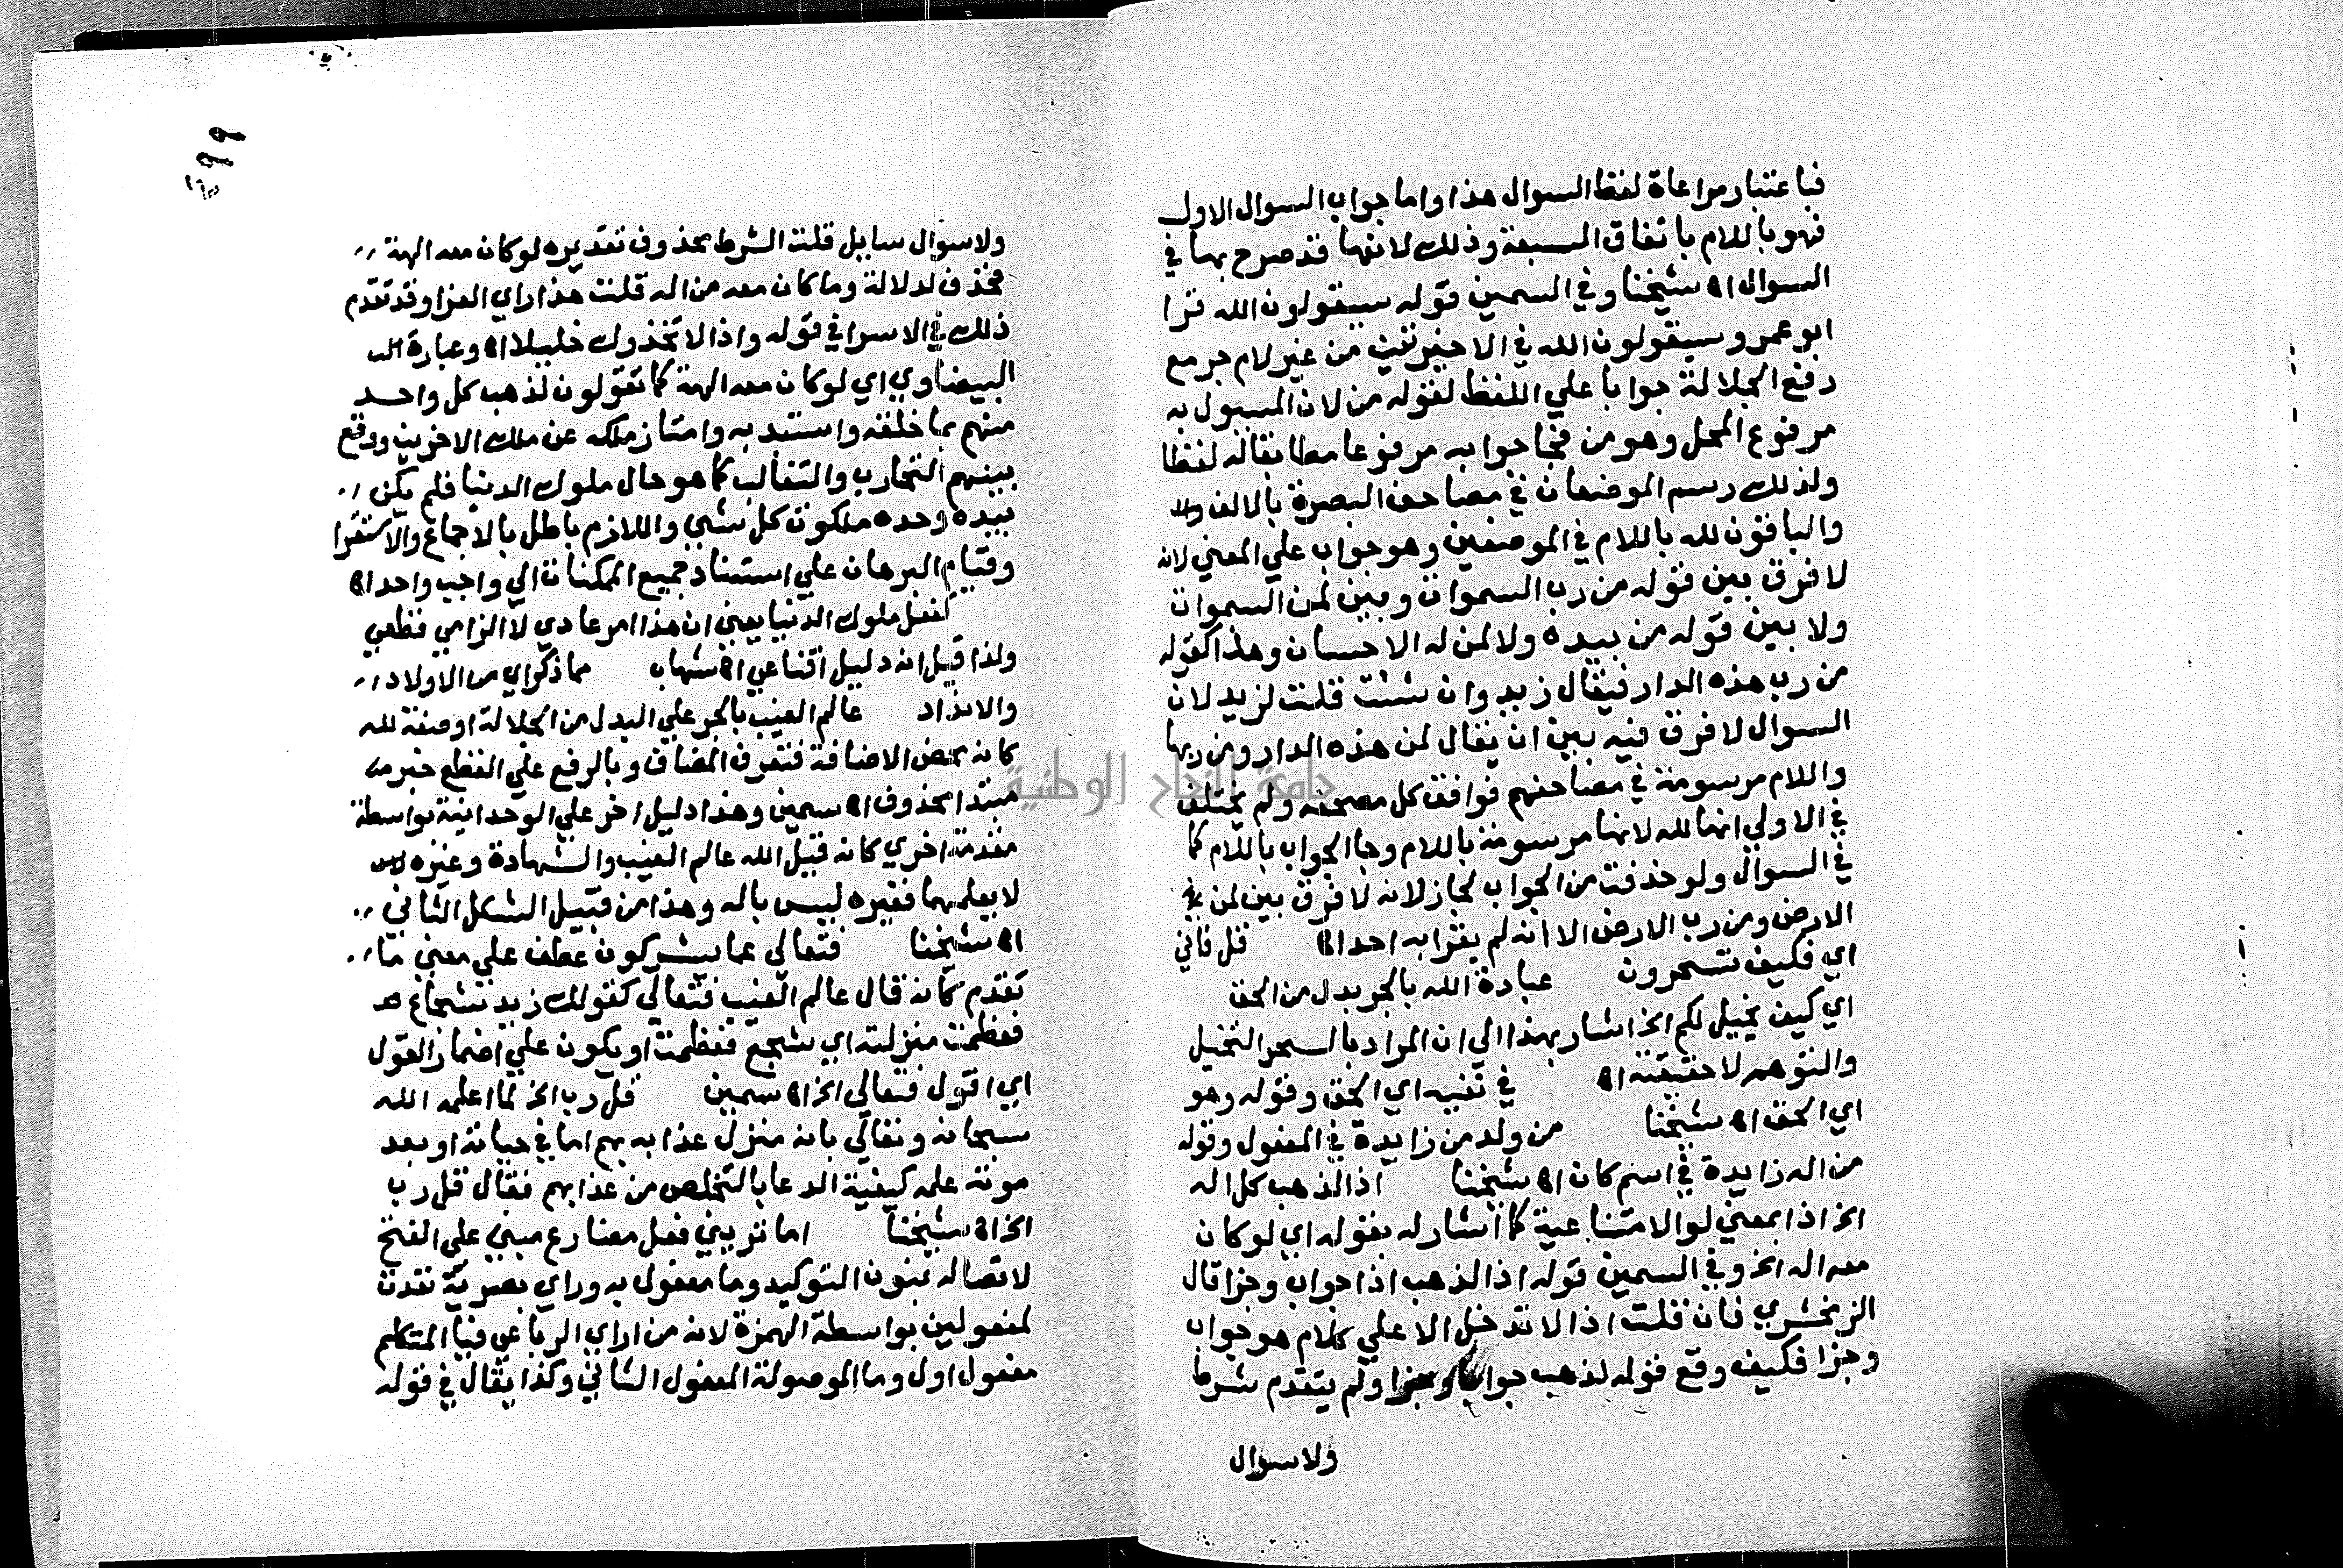 فباعتبار مراعاة لفظ السوال هذا واما جواب السوال الاول
فهو باللام باتفاق السبعة وذلك لانها قد صرح بها في
السوال اه شيخنا وفي السمين قوله سيقولون الله قرا
ابو عمرو سيقولون الله في الاخيرتين من غير لام جر مع
رفع الجلالة جوابا علي اللفظ لقوله من لان المسول به
مرفوع المحل وهو من فجا جوابه مرفوعا مطابقا له لفظا
ولذلك رسم الموضعان في مصاحف البصرة بالالف
والباقون لله باللام في الموضعين وهو جواب علي المعني لانه
لا فرق بين قوله من رب السموات وبين لمن السموات
ولا بين قوله من بيده ولا لمن له الاحسان وهذا كقوله
من رب هذه الدار فيقال زيد وان شئت قلت لزيد لان
السوال لا فرق فيه بين ان يقال لمن هذه الدار ومن ربها
واللام مرسومة في مصاحفهم فوافق كل مصحفه ولم يختلف
في الاولي انها لله لانها مرسومة باللام وجا الجواب باللام كما
في السوال ولو حذفت من الجواب لجاز لانه لا فرق بين لمن
الارض ومن رب الارض الا انه لم يقرا به احد اه قل فاني
اي فكيف تسحرون عبادة الله بالجر بدل من الحق
اي كيف يخيل لكم الخ اشار بهذا الي ان المراد بالسحر التخيل
والتوهم لا حقيقته اه في نفيه اي الحق وقوله وهو
اي الحق اه شيخنا من ولد من زايدة في المفعول وقوله
من اله زايدة في اسم كان اه شيخنا اذا لذهب كل اله
الخ اذا بمعني لو الامتناعية كما اشار له بقوله اي لو كان
معه اله الخ وفي السمين قوله اذا لذهب اذا جواب وجزا قال
الزمخشري فان قلت اذا لا تدخل الا علي كلام هو جواب
وجزا فكيف وقع قوله لذهب جوابا وجزا ولم يتقدم شرط
ولا سوال
ولا سوال سايل قلت الشرط محذوف تقديره لو كان معه الهة
فحذف لدلالة وما كان معه من اله قلت هذا راي الفرا وقد تقدم
ذلك في الاسرا في قوله واذا لاتخذوك خليلا اه وعبارة
البيضاوي اي لو كان معه الهة كما تقولون لذهب كل واحد
منهم بما خلقه واستبد به وامتاز ملكه عن ملك الاخرين ووقع
بينهم التحارب والتغالب كما هو حال ملوك الدنيا فلم يكن
بيده وحده ملكوت كل شيي واللازم باطل بالاجماع والاستقرا
وقيام البرهان علي استناد جميع الممكنات الي واجب واحد اه
كفعل ملوك الدنيا يعني ان هذا امر عادي لا الزامي قطعي
ولذا قيل انه دليل اقناعي اه شهاب مما ذكر اي من الاولاد
والانداد عالم الغيب بالجر علي البدل من الجلالة او صفة لله
كانه محض الاضافة فتعرف المضاف وبالرفع علي القطع خبر
مبتدا محذوف اه سمين وهذا دليل اخر علي الوحدانية بواسطة
مقدمة اخري كانه قيل الله عالم الغيب والشهادة وغيره
لا يعلمهما فغيره ليس باله وهذا من قبيل الشكل الثاني
اه شيخنا فتعالي عما يشركون عطف علي معني ما
تقدم كانه قال عالم الغيب فتعالي كقولك زيد شجاع
فعظمت منزلته اي شجع فعظمت او يكون علي اضمار القول
اي اقول فتعالي الخ اه سمين قل رب الخ لما اعلمه الله
سبحانه وتعالي بانه منزل عذابه بهم اما في حياته او بعد
موته علمه كيفية الدعا بالتخلص من عذابهم فقال قل رب
الخ اه شيخنا اما تريني فعل مضارع مبني علي الفتح
لاتصاله بنون التوكيد وما مفعول به وراي بصرية تعدت
لمفعولين بواسطة الهمزة لانه من اراي الرباعي فيا المتكلم
مفعول اول وما الموصولة المفعول الثاني وكذا يقال في قوله
جامعة النجاح الوطنية